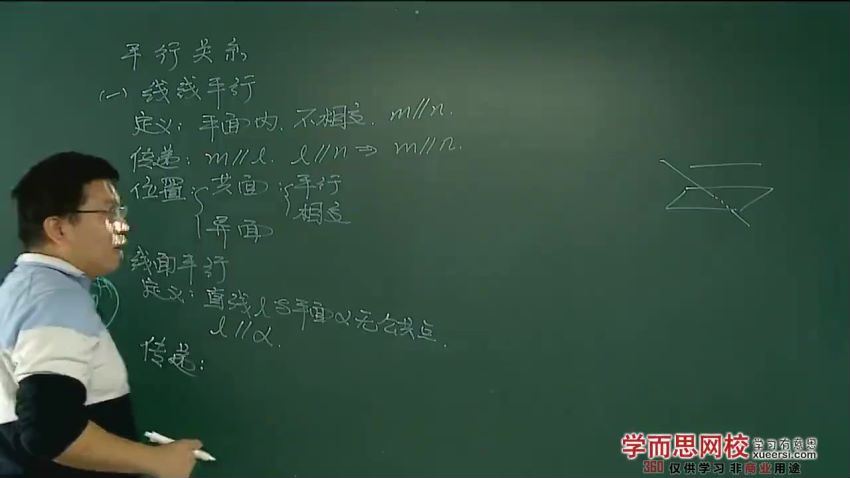 平行关系
(一) 线线平行
定义: 平面内、不相交. m//n.
传递: m//l. l//n ⇒ m//n.
位置: 共面: 平行
相交
异面
线面平行
定义: 直线l与平面α无公共点.
l//α.
传递:
学而思网校 学习有意思
xueersi.com
360 仅供学习 非商业用途